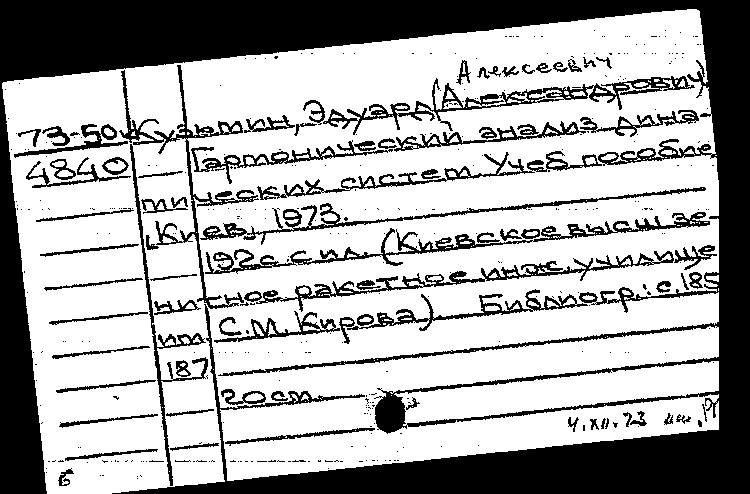 Алексеевич
73-50 Кузьмин, Эдуард (Александрович)
4840 Гармонический анализ дина-
мических систем. Учеб пособие.
[Киев], 1973.
192 с. с ил. (Киевское высш зе-
нитное ракетное инж. училище
им. С.М. Кирова). Библиогр.: с. 185
187
20 см.
4.XII.73
Б